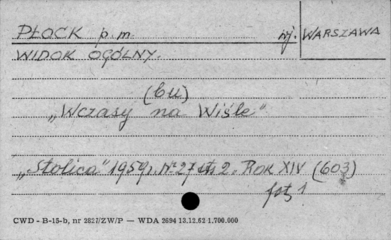 PŁOCK p.m. wj. WARSZAWA
WIDOK OGÓLNY.
(bu)
„Wczasy na Wiśle"
„Stolica" 1959r. Nr 27 str 2. ROK XIV (603)
fot 1
CWD - B-15-b, nr 2827/ZW/P — WDA 2694 13.12.62 1.700.000